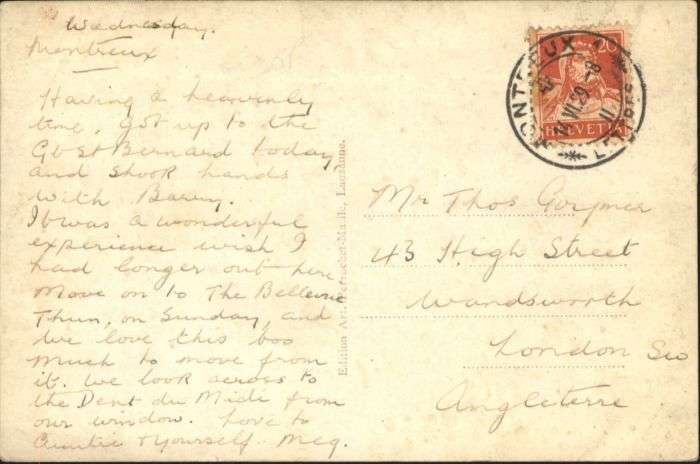 Wednesday.
Montreux
Having a heavenly
time, got up to the
Gt St Bernard today,
and shook hands
with Barry.
It was a wonderful
experience wish I
had longer out here
Move on to The Bellevue
Thun, on Sunday, and
we love this too
much to move from
it. We look across to
the Dent du Midi from
our window. Love to
Auntie & yourself. Meg.
Edition Art. Lausanne.
20
HELVETIA
MONTREUX 1
VI.29 - 8
LETTRES
Mr Thos
43 High Street
Wandsworth
London SW
Angleterre